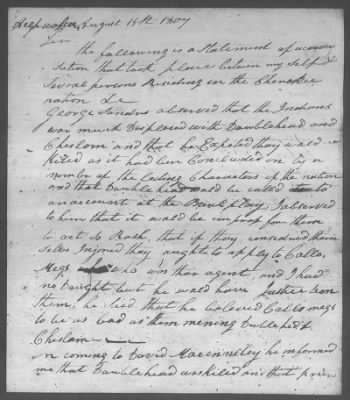 August 15th 1807
Sir
the following is a Statement of
sation that took place between my Self &
Several persons Residing in the Cherokee
nation
George Sanders observed that the Indeans
was much Displesed with Dawblehead and
Cheslom and that he Expeted they wald be
Killed as it had ben Concluded on by a
number of the leding Charectors of the nation
and that Dawblehead wald be called to
an account at the Bawl play, I observed
to him that it wald be improp for them
to act So Rash, that if they concedered them
Selve Injored they aught to apply to Collo.
Megs who was thar agent and I had
no Daught but he wald have Justice don
them, he Sed that he beleved Collo megs
to be as bad as them mening Dublehed &
Cheslom
on coming to David he informed
me that Dawblehead was Killed and that